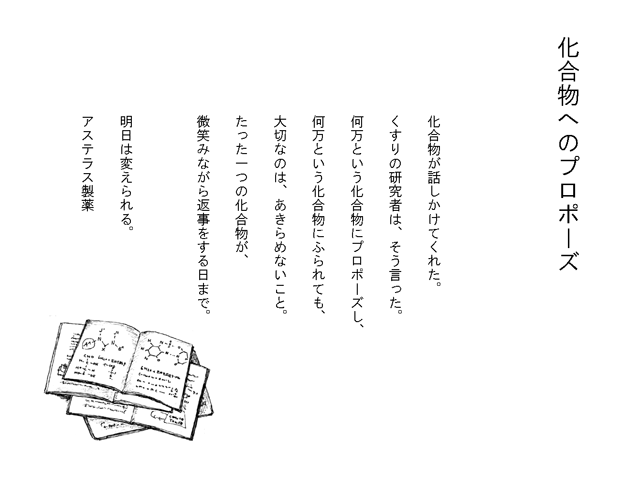 化合物へのプロポーズ
化合物が話しかけてくれた。
くすりの研究者は、そう言った。
何万という化合物にプロポーズし、
何万という化合物にふられても、
大切なのは、あきらめないこと。
たった一つの化合物が、
微笑みながら返事をする日まで。
明日は変えられる。
アステラス製薬